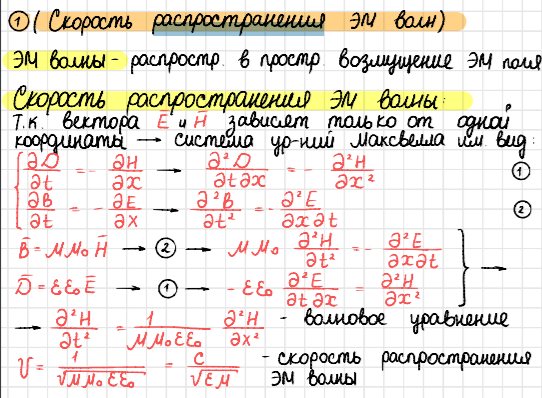 ① (Скорость распространения ЭМ волн)
ЭМ волны - распростр. в простр. возмущение ЭМ поля
Скорость распространения ЭМ волны:
Т.к. вектора E̅ и H̅ зависят только от одной
координаты → система ур-ний Максвелла им. вид:
∂D/∂t = - ∂H/∂x → ∂²D/∂t∂x = - ∂²H/∂x² ①
∂B/∂t = - ∂E/∂x → ∂²B/∂t² = - ∂²E/∂x∂t ②
B̅ = μμ₀H̅ → ② → μμ₀ ∂²H/∂t² = - ∂²E/∂x∂t
D̅ = εε₀E̅ → ① → - εε₀ ∂²E/∂t∂x = ∂²H/∂x² } →
→ ∂²H/∂t² = 1/μμ₀εε₀ ∂²H/∂x² - волновое уравнение
υ = 1/√μμ₀εε₀ = c/√εμ - скорость распространения
ЭМ волны